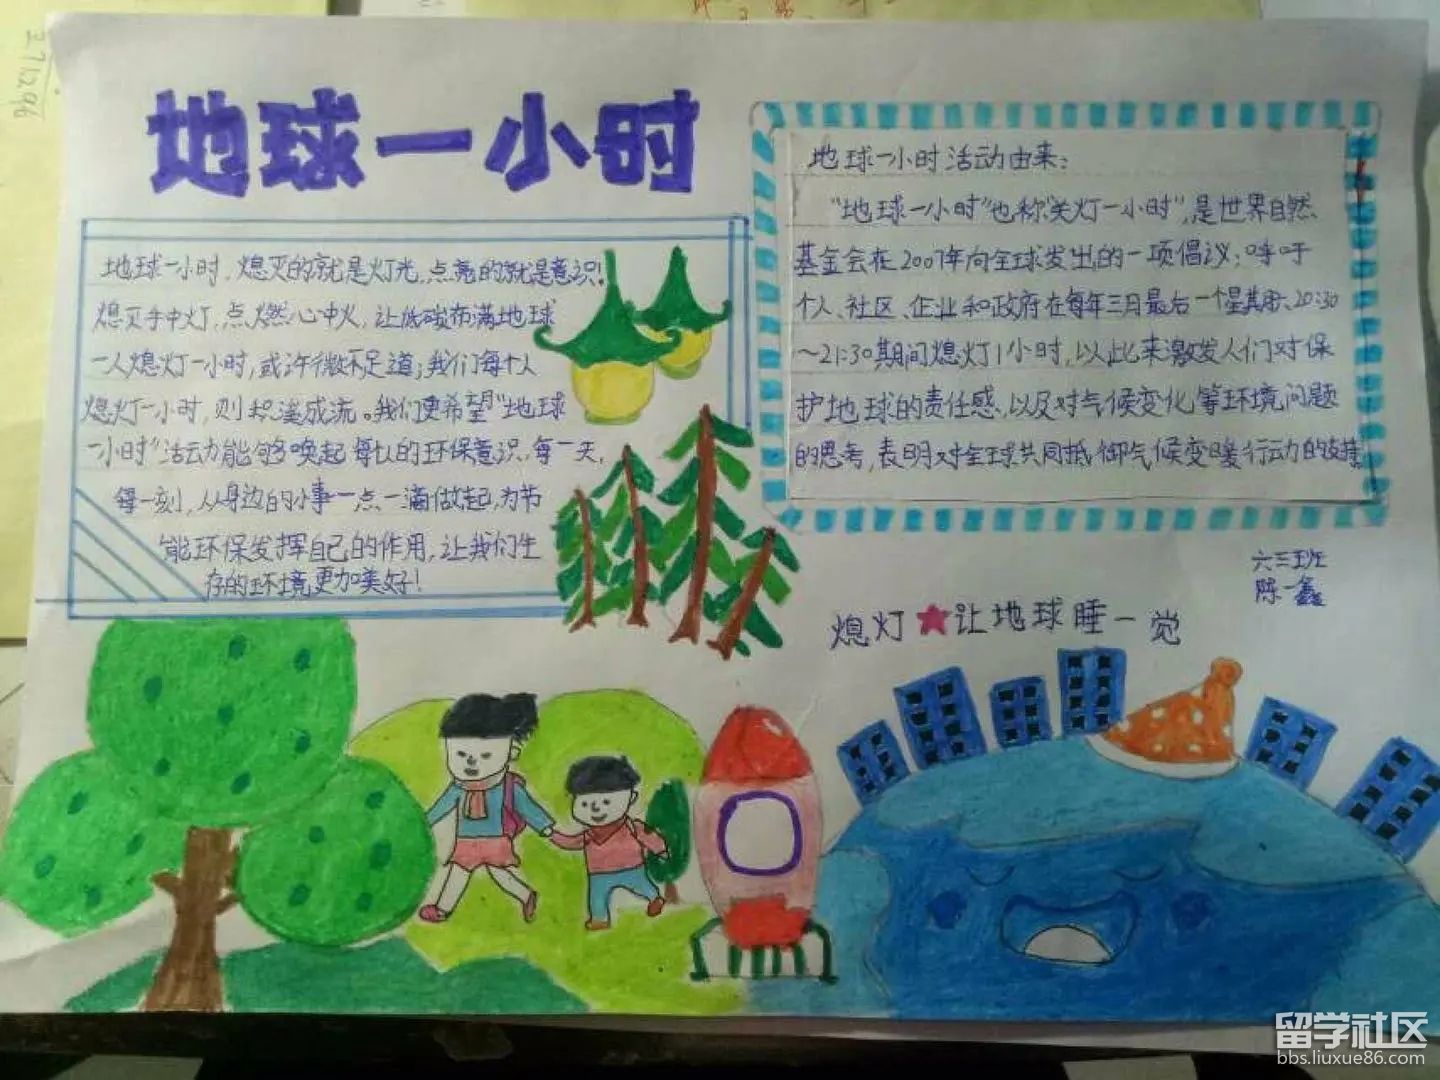 地球一小时
地球一小时,熄灭的就是灯光,点亮的就是意识!
熄灭手中灯,点燃心中火,让低碳布满地球
一人熄灯一小时,或许微不足道;我们每个人
熄灯一小时,则积滴成流。我们更希望"地球
一小时"活动能够唤起每人的环保意识,每一天,
每一刻,从身边的小事一点一滴做起,为节
能环保发挥自己的作用,让我们生
存的环境更加美好!
地球一小时活动由来:
"地球一小时"也称"关灯一小时",是世界自然
基金会在2007年向全球发出的一项倡议:呼吁
个人、社区、企业和政府在每年三月最后一个星期六20:30
~21:30期间熄灯1小时,以此来激发人们对保
护地球的责任感,以及对气候变化等环境问题
的思考,表明对全球共同抵御气候变暖行动的支持。
六三班
陈一鑫
熄灯★让地球睡一觉
371296
留学社区
bbs.liuxue86.com